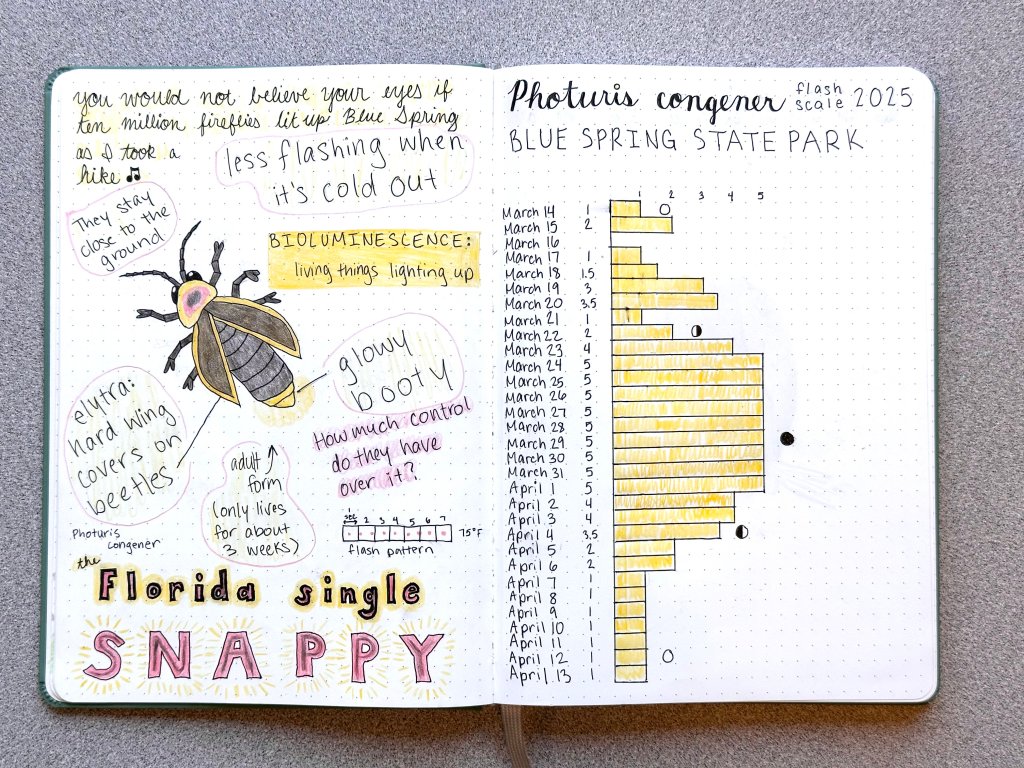 you would not believe your eyes if
ten million fireflies lit up Blue Spring
as I took a
hike ♫
less flashing when
it's cold out
They stay
close to the
ground
BIOLUMINESCENCE:
living things lighting up
glowy
booty
elytra:
hard wing
covers on
beetles
How much control
do they have
over it?
adult
form
(only lives
for about
3 weeks)
Photuris
congener
1 sec
2 3 4 5 6 7
75°F
flash pattern
the
Florida single
SNAPPY
Photuris congener flash scale 2025
BLUE SPRING STATE PARK
1 2 3 4 5
March 14 1
March 15 2
March 16
March 17 1
March 18 1.5
March 19 3
March 20 3.5
March 21 1
March 22 2
March 23 4
March 24 5
March 25 5
March 26 5
March 27 5
March 28 5
March 29 5
March 30 5
March 31 5
April 1 5
April 2 4
April 3 4
April 4 3.5
April 5 2
April 6 2
April 7 1
April 8 1
April 9 1
April 10 1
April 11 1
April 12 1
April 13 1